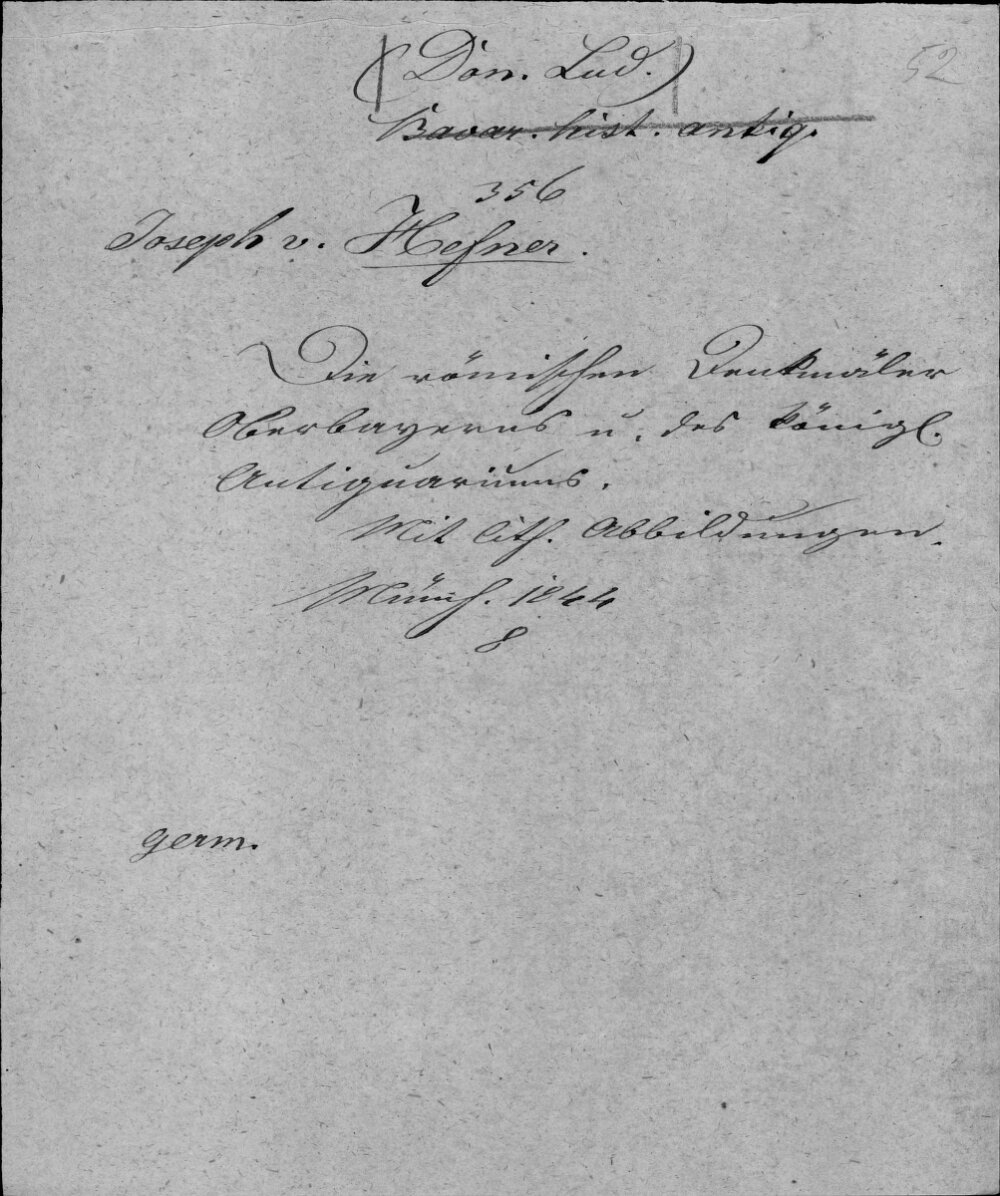 (Don. Lud.)
52
Bavar. hist. antiq.
356
Joseph v. Hefner.
Die römischen Denkmäler
Oberbayerns u. des königl.
Antiquariums.
Mit lith. Abbildungen.
Münch. 1844
8
germ.